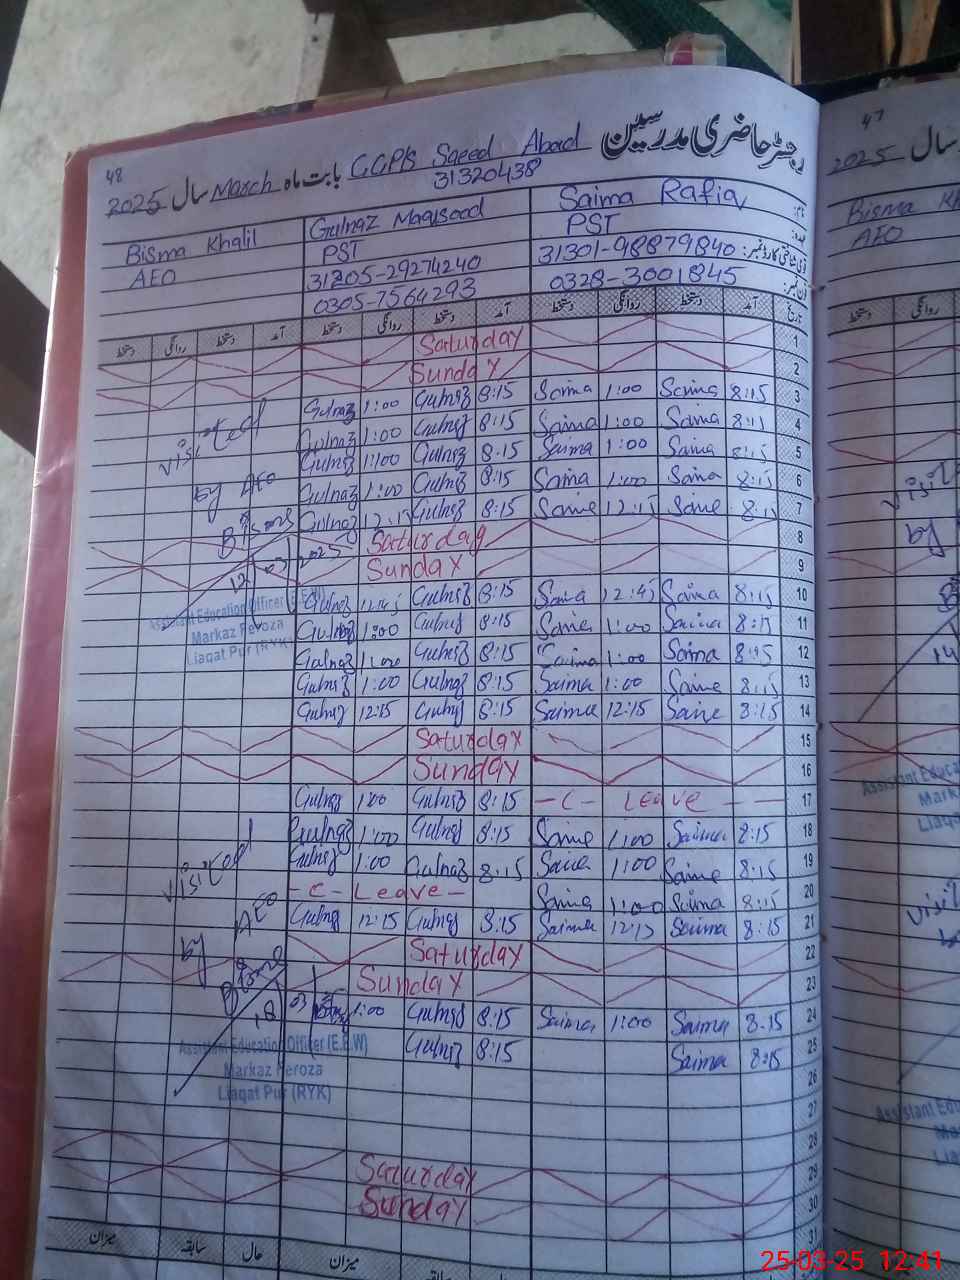 48
رجسٹر حاضری مدرسین GGPS Saeed Abad بابت ماہ March سال 2025
31320438
Saima Rafiq Gulnaz Maqsood Bisma Khalil
PST PST AEO
31301-98879840 31205-29274240
0328-3001845 0305-7564293
تاریخ آمد دستخط روانگی دستخط آمد دستخط روانگی دستخط آمد دستخط روانگی دستخط
Saturday 1
Sunday 2
Gulnaz 1:00 Gulnaz 8:15 Saima 1:00 Saima 8:15 3
Gulnaz 1:00 Gulnaz 8:15 Saima 1:00 Saima 8:15 4
Gulnaz 1:00 Gulnaz 8:15 Saima 1:00 Saima 8:15 5
Gulnaz 1:00 Gulnaz 8:15 Saima 1:00 Saima 8:15 6
Gulnaz 12:15 Gulnaz 8:15 Saima 12:15 Saima 8:15 7
visited
by AEO
Bisma
12/03/2025
Saturday 8
Sunday 9
Assistant Education Officer (E.E.W)
Markaz Feroza
Liaqat Pur (RYK)
Gulnaz 12:45 Gulnaz 8:15 Saima 12:45 Saima 8:15 10
Gulnaz 1:00 Gulnaz 8:15 Saima 1:00 Saima 8:15 11
Gulnaz 1:00 Gulnaz 8:15 Saima 1:00 Saima 8:15 12
Gulnaz 1:00 Gulnaz 8:15 Saima 1:00 Saima 8:15 13
Gulnaz 12:15 Gulnaz 8:15 Saima 12:15 Saima 8:15 14
Saturday 15
Sunday 16
Gulnaz 1:00 Gulnaz 8:15 -C- Leave - 17
Gulnaz 1:00 Gulnaz 8:15 Saima 1:00 Saima 8:15 18
Gulnaz 1:00 Gulnaz 8:15 Saima 1:00 Saima 8:15 19
-C- Leave- Saima 1:00 Saima 8:15 20
Gulnaz 12:15 Gulnaz 8:15 Saima 12:15 Saima 8:15 21
visited
by AEO
Bisma
18/03
Saturday 22
Sunday 23
1:00 Gulnaz 8:15 Saima 1:00 Saima 8:15 24
Gulnaz 8:15 Saima 8:15 25
Assistant Education Officer (E.E.W)
Markaz Feroza
Liaqat Pur (RYK)
26
27
28
Saturday 29
Sunday 30
31
میزان حال سابقہ میزان
47
سال 2025
Bisma Kh
AEO
دستخط روانگی
visit
by
14
Assistant Educa
Mark
Liaq
visit
Assistant Edu
25-03-25 12:41